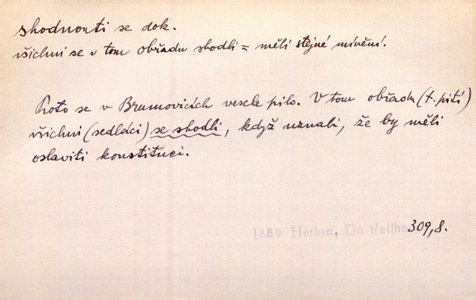 shodnouti se dok.
všichni se v tom obřadu shodli = měli stejné mínění.
Proto se v Brumovicích vesele pilo. V tom obřadu (t. pití)
všichni (sedláci) se shodli, když uznali, že by měli
oslaviti konstituci.
1889 Herben, Do třetího 309,8.